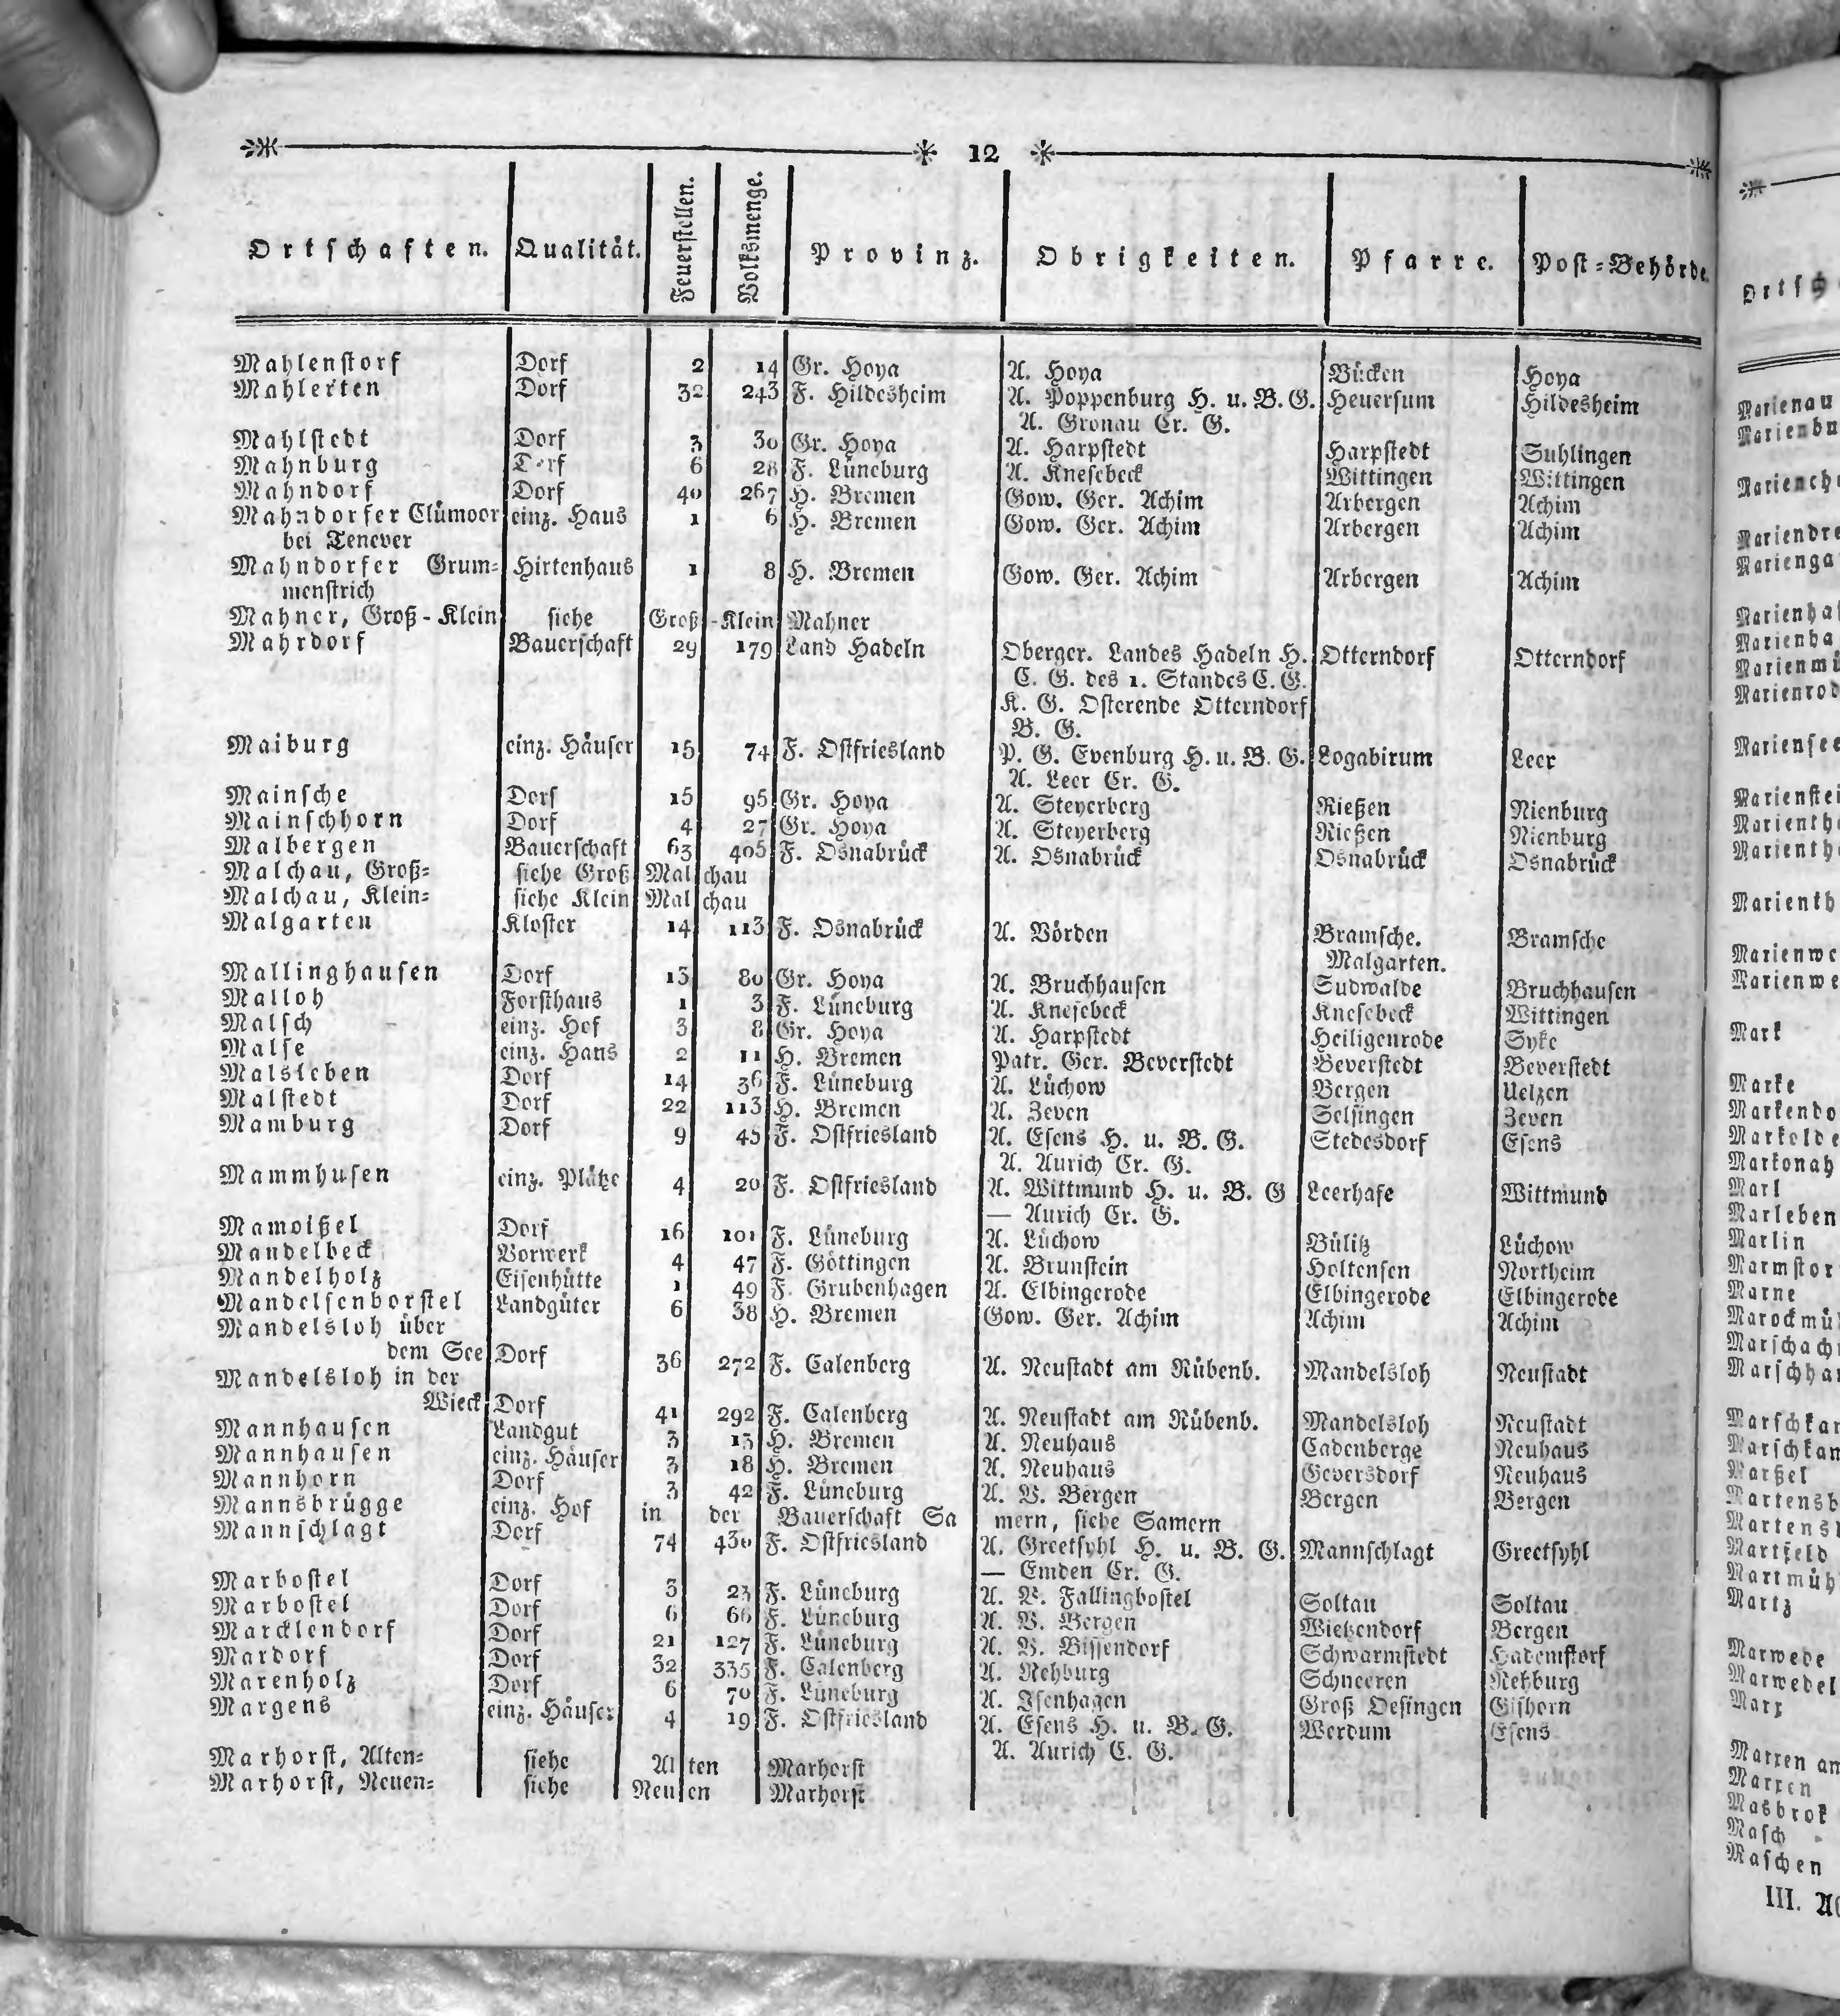 12
Ortschaften. Qualität. Feuerstellen. Volksmenge. Provinz. Obrigkeiten. Pfarre. Post-Behörde.
Mahlenstorf Dorf 2 14 Gr. Hoya A. Hoya Bücken Hoya
Mahlerten Dorf 32 243 F. Hildesheim A. Poppenburg H. u. B. G. Heuersum Hildesheim
A. Gronau Cr. G.
Mahlstedt Dorf 3 30 Gr. Hoya A. Harpstedt Harpstedt Suhlingen
Mahnburg Dorf 6 28 F. Lüneburg A. Knesebeck Wittingen Wittingen
Mahndorf Dorf 40 267 H. Bremen Gow. Ger. Achim Arbergen Achim
Mahndorfer Clümoor einz. Haus 1 6 H. Bremen Gow. Ger. Achim Arbergen Achim
bei Tenever
Mahndorfer Grum- Hirtenhaus 1 8 H. Bremen Gow. Ger. Achim Arbergen Achim
menstrich
Mahner, Groß-Klein siehe Groß-Klein Mahner
Mahrdorf Bauerschaft 29 179 Land Hadeln Oberger. Landes Hadeln H. Otterndorf Otterndorf
C. G. des 1. Standes C. G.
K. G. Osterende Otterndorf
B. G.
Maiburg einz. Häuser 15 74 F. Ostfriesland P. G. Evenburg H. u. B. G. Logabirum Leer
A. Leer Cr. G.
Mainsche Dorf 15 95 Gr. Hoya A. Steyerberg Rießen Nienburg
Mainschhorn Dorf 4 27 Gr. Hoya A. Steyerberg Rießen Nienburg
Malbergen Bauerschaft 63 405 F. Osnabrück A. Osnabrück Osnabrück Osnabrück
Malchau, Groß- siehe Groß Malchau
Malchau, Klein- siehe Klein Malchau
Malgarten Kloster 14 113 F. Osnabrück A. Vörden Bramsche. Bramsche
Malgarten.
Mallinghausen Dorf 13 80 Gr. Hoya A. Bruchhausen Sudwalde Bruchhausen
Malloh Forsthaus 1 3 F. Lüneburg A. Knesebeck Knesebeck Wittingen
Malsch einz. Hof 3 8 Gr. Hoya A. Harpstedt Heiligenrode Syke
Malse einz. Haus 2 11 H. Bremen Patr. Ger. Beverstedt Beverstedt Beverstedt
Malsleben Dorf 14 36 F. Lüneburg A. Lüchow Bergen Uelzen
Malstedt Dorf 22 113 H. Bremen A. Zeven Selsingen Zeven
Mamburg Dorf 9 45 F. Ostfriesland A. Esens H. u. B. G. Stedesdorf Esens
A. Aurich Cr. G.
Mammhusen einz. Plätze 4 20 F. Ostfriesland A. Wittmund H. u. B. G Leerhafe Wittmund
— Aurich Cr. G.
Mamoißel Dorf 16 101 F. Lüneburg A. Lüchow Bülitz Lüchow
Mandelbeck Vorwerk 4 47 F. Göttingen A. Brunstein Holtensen Northeim
Mandelholz Eisenhütte 1 49 F. Grubenhagen A. Elbingerode Elbingerode Elbingerode
Mandelsenborstel Landgüter 6 38 H. Bremen Gow. Ger. Achim Achim Achim
Mandelsloh über
dem See Dorf 36 272 F. Calenberg A. Neustadt am Rübenb. Mandelsloh Neustadt
Mandelsloh in der
Wieck Dorf 41 292 F. Calenberg A. Neustadt am Rübenb. Mandelsloh Neustadt
Mannhausen Landgut 3 13 H. Bremen A. Neuhaus Cadenberge Neuhaus
Mannhausen einz. Häuser 3 18 H. Bremen A. Neuhaus Geversdorf Neuhaus
Mannhorn Dorf 3 42 F. Lüneburg A. V. Bergen Bergen Bergen
Mannsbrügge einz. Hof in der Bauerschaft Samern, siehe Samern
Mannschlagt Dorf 74 430 F. Ostfriesland A. Greetsyhl H. u. B. G. Mannschlagt Greetsyhl
— Emden Cr. G.
Marbostel Dorf 3 23 F. Lüneburg A. V. Fallingbostel Soltau Soltau
Marbostel Dorf 6 66 F. Lüneburg A. V. Bergen Wietzendorf Bergen
Marcklendorf Dorf 21 127 F. Lüneburg A. V. Bissendorf Schwarmstedt Hademstorf
Mardorf Dorf 32 335 F. Calenberg A. Rehburg Schneeren Rehburg
Marenholz Dorf 6 70 F. Lüneburg A. Isenhagen Groß Oesingen Gifhorn
Margens einz. Häuser 4 19 F. Ostfriesland A. Esens H. u. B. G. Werdum Esens
A. Aurich C. G.
Marhorst, Alten- siehe Alten Marhorst
Marhorst, Neuen- siehe Neuen Marhorst
Marienau
Mark
Marke
Marl
Marleben
Marlin
Marne
Marßel
Martfeld
Martz
Marwede
Marwedel
Marx
Marxen am
Marxen
Masbrok
Masch
Maschen
III.